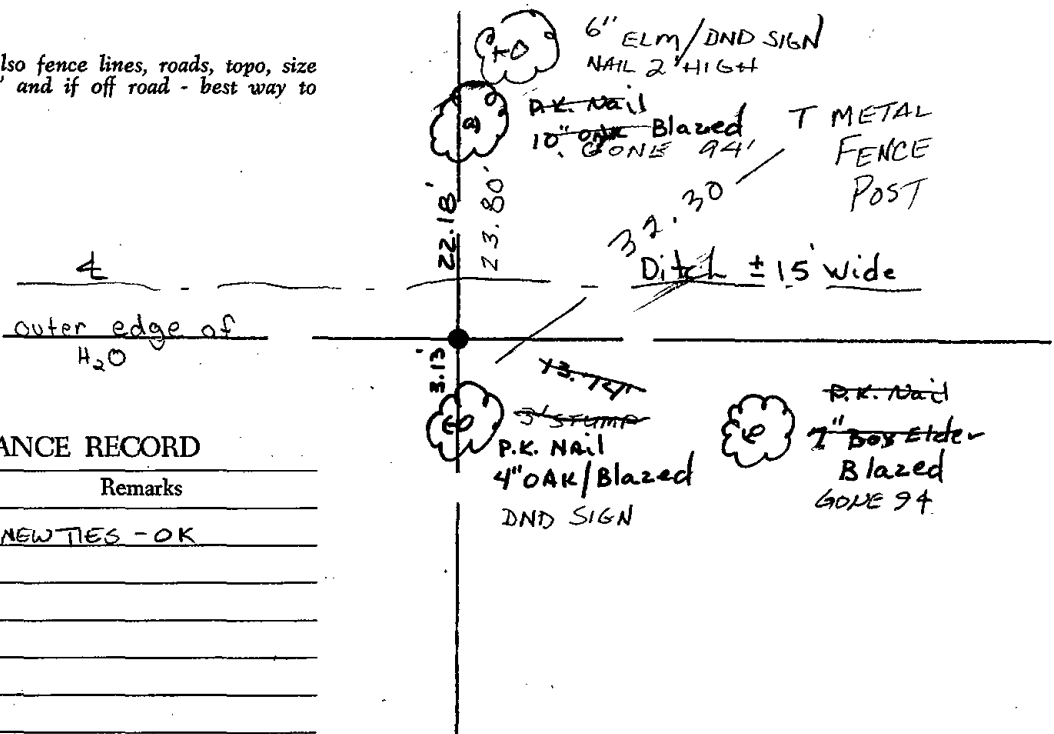 lso fence lines, roads, topo, size
' and if off road - best way to
6" ELM/DND SIGN
NAIL 2' HIGH
P.K. Nail
10" OAK Blazed
GONE 94'
T METAL
FENCE
POST
22.18'
23.80'
32.30
Ditch ± 15' wide
outer edge of
H2O
3.13'
13.74'
3' STUMP
P.K. NAil
4" OAK/Blazed
DND SIGN
P.K. Nail
7" Box Elder
Blazed
GONE 94
ANCE RECORD
Remarks
NEW TIES - OK